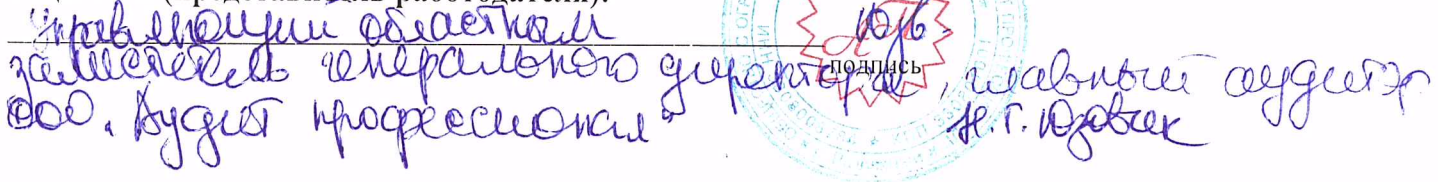 (представитель работодателя):
Управляющий областным Юзв.
заместитель генерального директора, главный аудитор
подпись
ООО "Аудит профессионал" Н.Г. Юзовчак